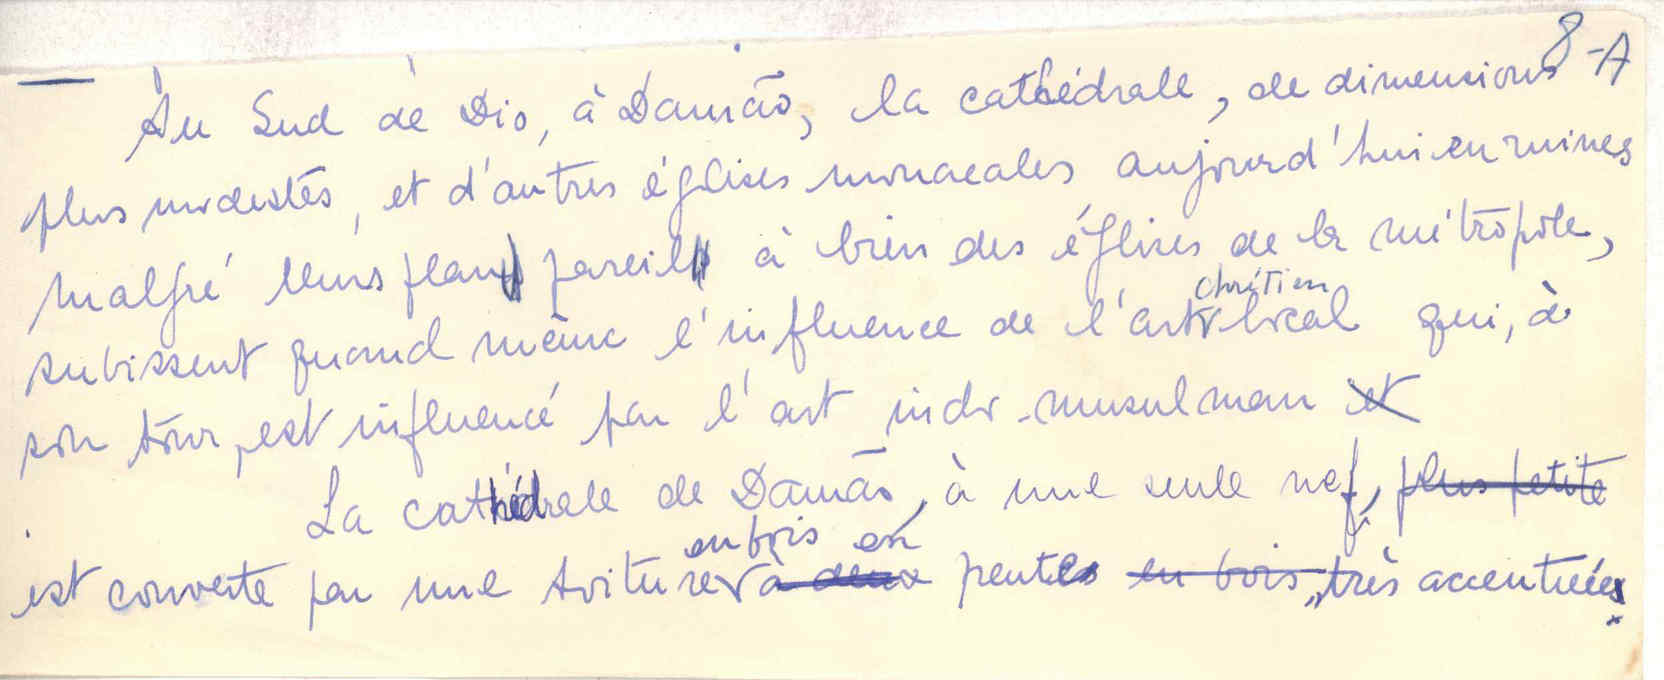 8-A
Au Sud de Dio, à Damão, la cathédrale, de dimensions
plus modestes, et d'autres églises monacales aujourd'hui en ruines
malgré leurs plans pareils à bien des églises de la métropole,
chrétien
subissent quand même l'influence de l'art local qui, à
son tour, est influencé par l'art indo-musulman et
La cathédrale de Damão, à une seule nef, plus petite
en bois en
est couverte par une toiture à deux pentes en bois, très accentuées.